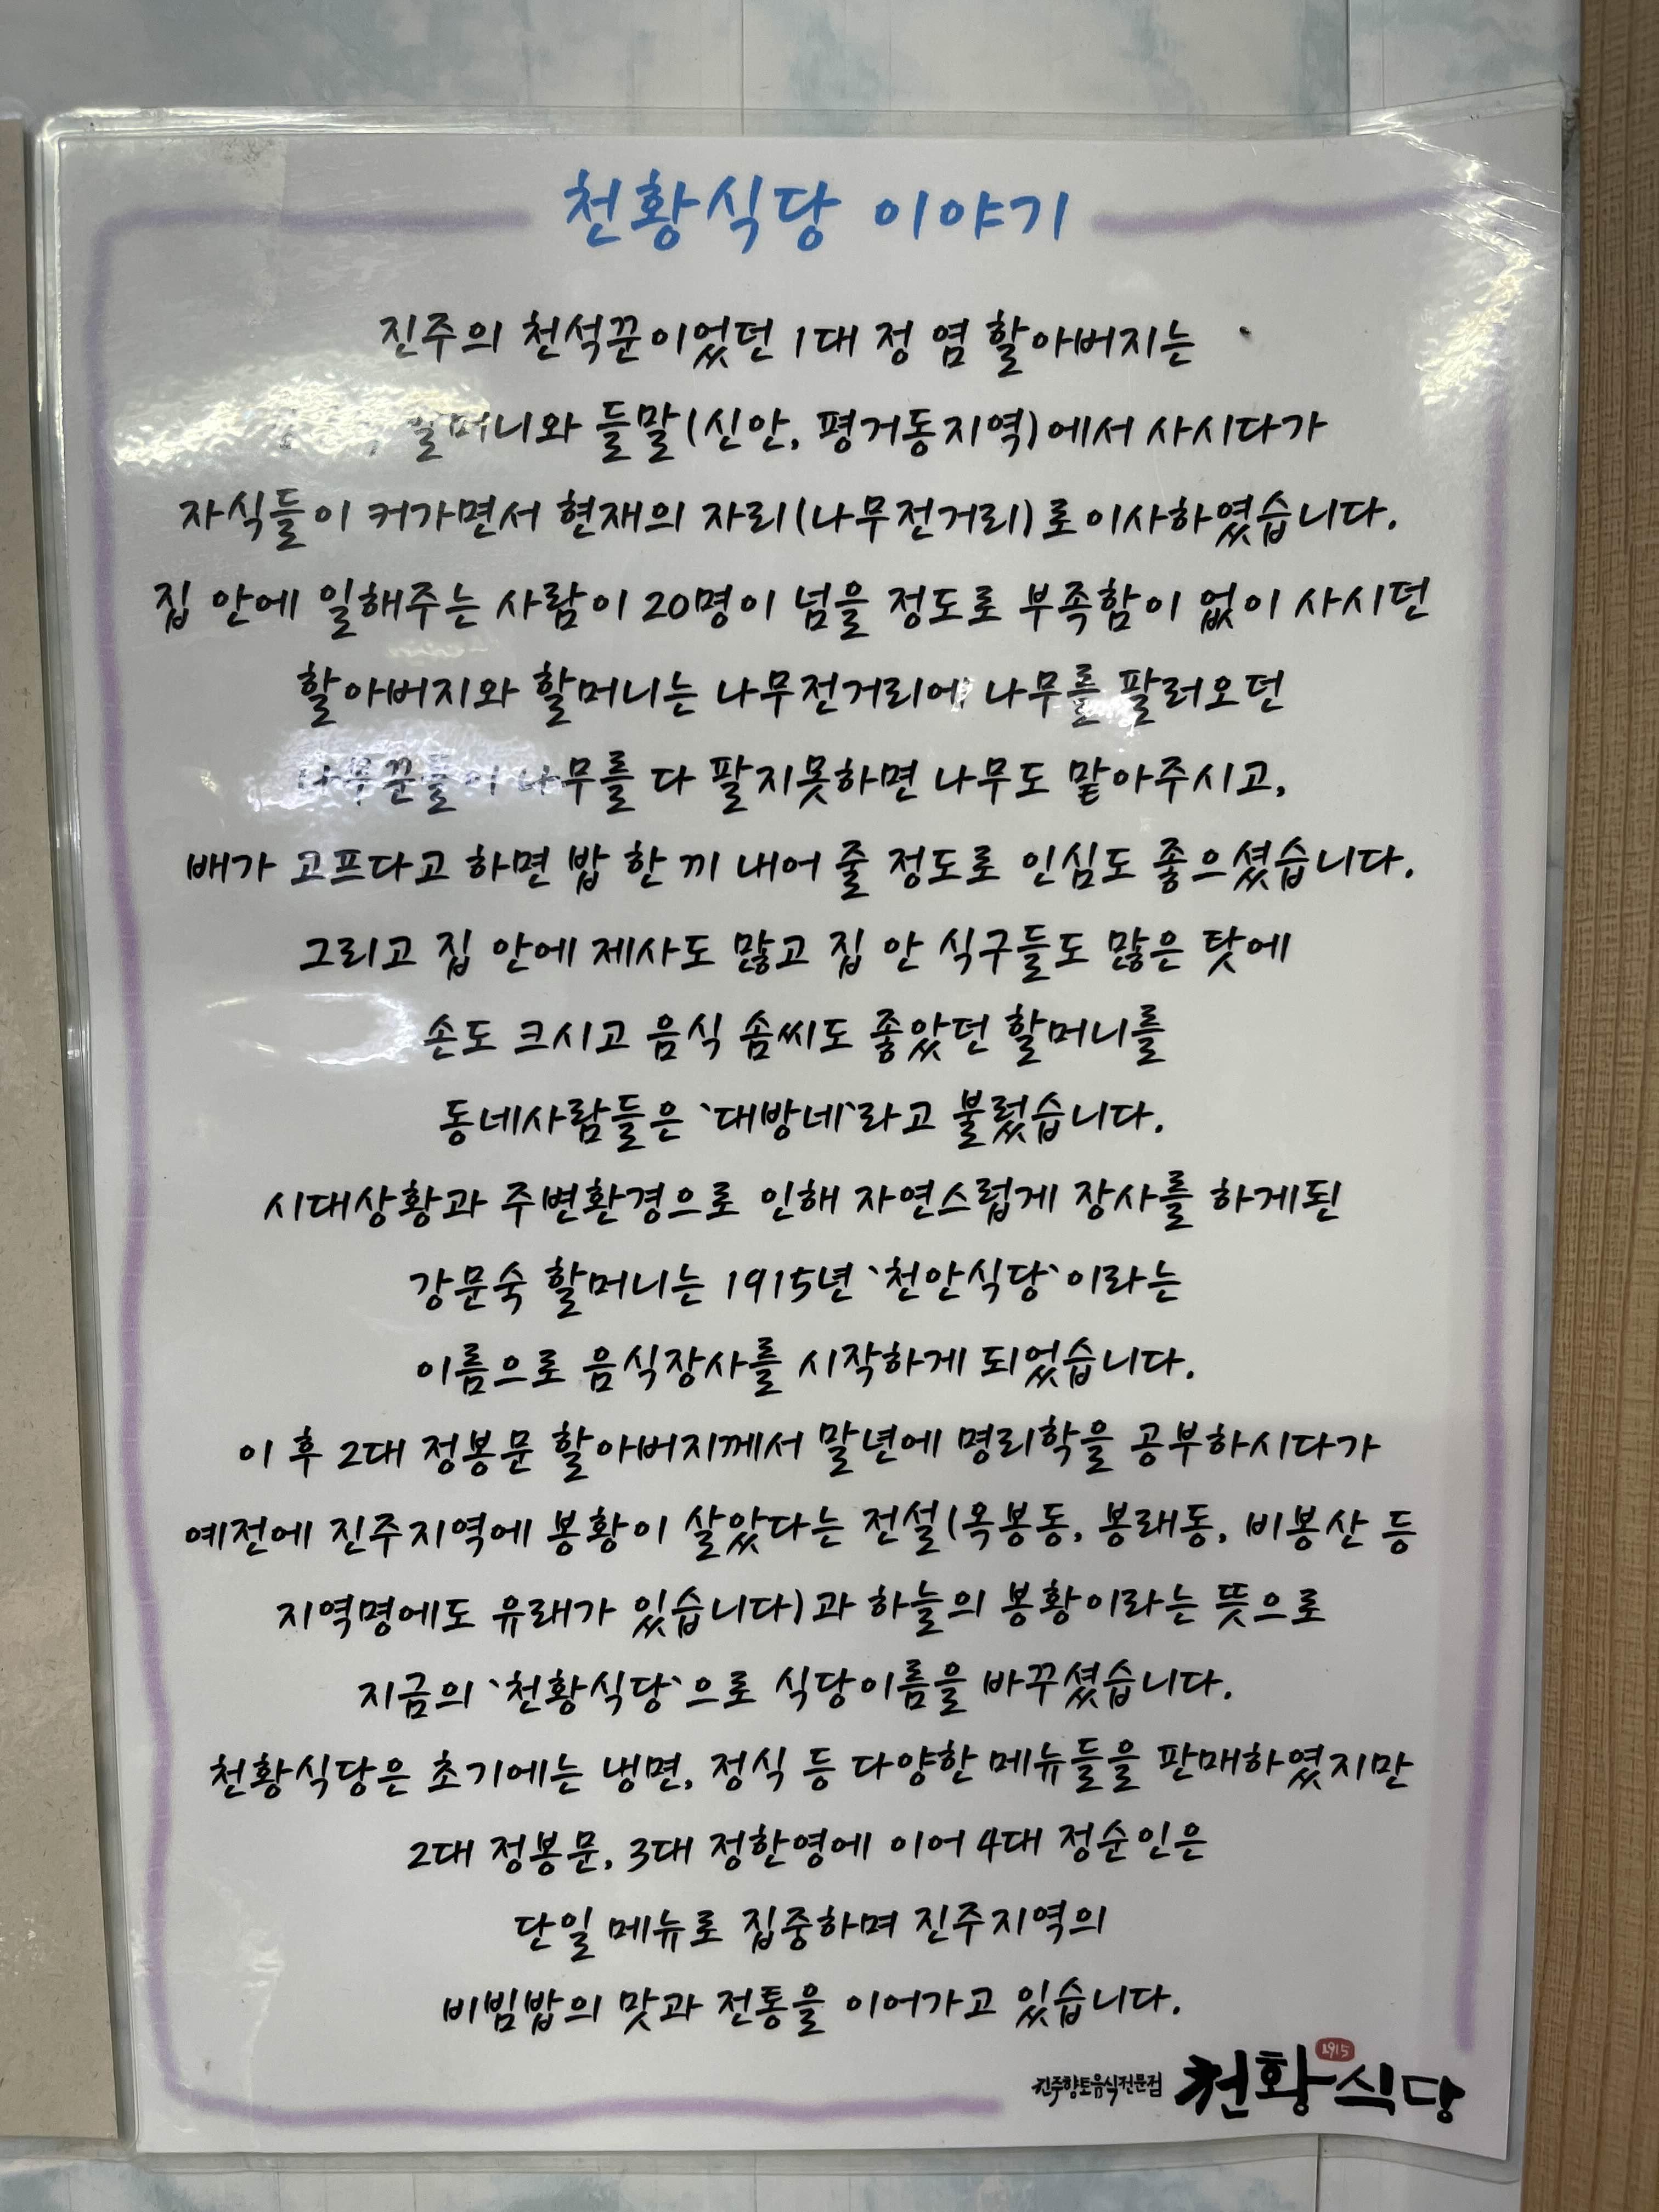 천황식당 이야기
진주의 천석꾼이었던 1대 정 염 할아버지는
할머니와 들말(신안, 평거동지역)에서 사시다가
자식들이 커가면서 현재의 자리(나무전거리)로이사하였습니다.
집 안에 일해주는 사람이 20명이 넘을 정도로 부족함이 없이 사시던
할아버지와 할머니는 나무전거리에 나무를 팔러오던
나무꾼들이 나무를 다 팔지못하면 나무도 맡아주시고,
배가 고프다고 하면 밥 한 끼 내어 줄 정도로 인심도 좋으셨습니다.
그리고 집 안에 제사도 많고 집 안 식구들도 많은 탓에
손도 크시고 음식 솜씨도 좋았던 할머니를
동네사람들은 `대방네`라고 불렀습니다.
시대상황과 주변환경으로 인해 자연스럽게 장사를 하게된
강문숙 할머니는 1915년 `천안식당`이라는
이름으로 음식장사를 시작하게 되었습니다.
이 후 2대 정봉문 할아버지께서 말년에 명리학을 공부하시다가
예전에 진주지역에 봉황이 살았다는 전설(옥봉동, 봉래동, 비봉산 등
지역명에도 유래가 있습니다)과 하늘의 봉황이라는 뜻으로
지금의 `천황식당`으로 식당이름을 바꾸셨습니다.
천황식당은 초기에는 냉면, 정식 등 다양한 메뉴들을 판매하였지만
2대 정봉문, 3대 정한영에 이어 4대 정순인은
단일 메뉴로 집중하며 진주지역의
비빔밥의 맛과 전통을 이어가고 있습니다.
진주향토음식전문점 천황식당 1915